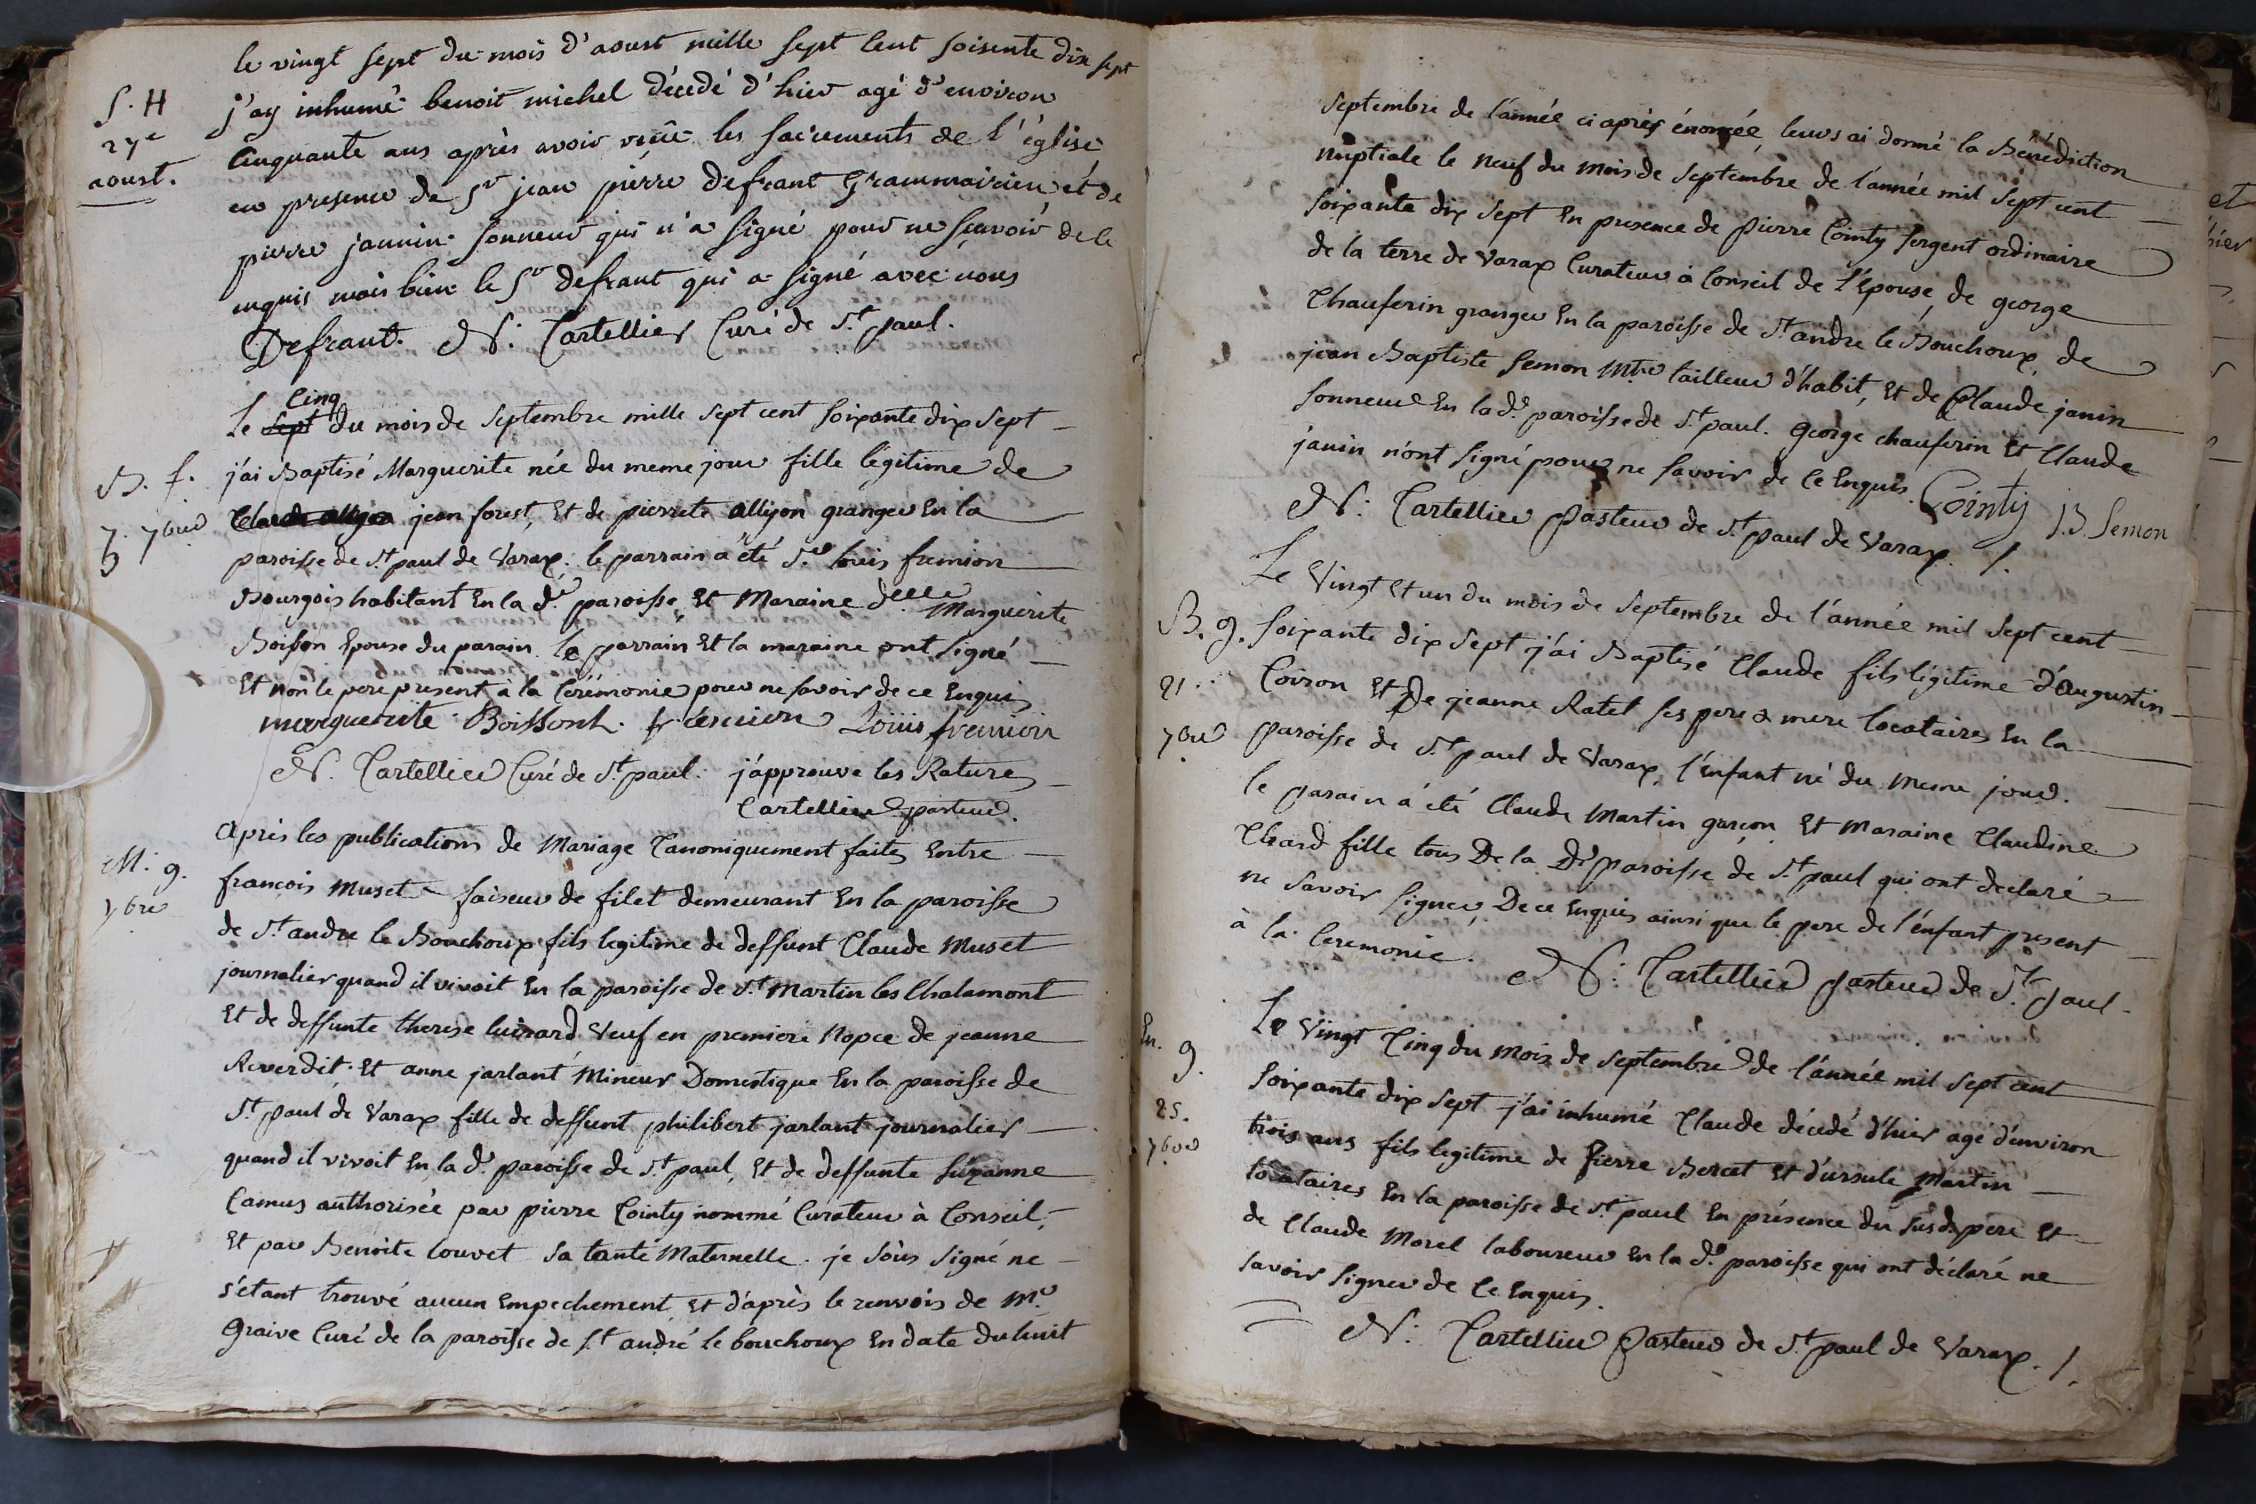 le vingt sept du mois d'aoust mille sept cent soisente dix sept
S. H
27e
aoust.
j'ay inhumé benoit michel décédé d'hier agé d'environ
Cinquante ans après avoir reçu les sacrements de l'église
en presence de Sr jean pierre defrant Grammairien et de
pierre jannin sonneur qui n'a signé pour ne sçavoir de ce
enquis mais bien le Sr defrant qui a signé avec nous
Defrant. N: Cartellier Curé de St. paul.
Cinq
Le sept du mois de septembre mille sept cent soixante dix sept
B. f.
5. 7bre
j'ai Baptisé Marguerite née du meme jour fille légitime de
jean forest, Et de pierrete allijon granger En la
paroisse de St. paul de Varax. le parrain a été Sr. louis fremion
Bourgois habitant En la de. paroisse, Et Maraine delle Marguerite
Boisson Epouse du parain. le parrain Et la maraine ont signé
Et non le pere present à la Cérémonie pour ne savoir de ce Enquis
marguerite Boissont. Louis fremion
N. Cartellier Curé de St. paul. j'approuve les Ratures
Cartellier pasteur.
M. 9.
7bre
Après les publications de Mariage Canoniquement faites Entre
francois Muset faiseur de filet demeurant En la paroisse
de St. andre le Bouchoux fils legitime de deffunt Claude Muset
journalier quand il vivoit En la paroisse de St. Martin les Chalamont
Et de deffunte therese luisard Veuf en premiere Nopce de jeanne
Reverdit. Et anne jarlant Mineur Domestique En la paroisse de
St. paul de Varax fille de deffunt philibert jarlant journalier
quand il vivoit En la de. paroisse de St. paul, Et de deffunte suzanne
Camus authorisée par pierre Cointy nommé Curateur à Conseil,
Et par Benoite louvet sa tante Maternelle. je sous signé ne
s'étant trouvé aucun Empechement Et d'après le renvois de Mr.
Graive Curé de la paroisse de St. andré le bouchoux En date du huit
septembre de l'année ci après énoncée, leurs ai donné la Bénédiction
nuptiale le neuf du mois de septembre de l'année mil sept cent
soixante dix sept En presence de pierre Cointy sergent ordinaire
de la terre de Varax Curateur à Conseil de l'Epouse, de george
Chauferin granger En la paroisse de St. andre le Bouchoux, de
jean Baptiste semon Mtre tailleur d'habit, Et de Claude janin
sonneur En la de. paroisse de St. paul. george chauferin Et Claude
janin n'ont signé pour ne savoir de ce Enquis. Cointy J. B. Semon
N: Cartellier pasteur de St. paul de Varax. /.
B. g.
21.
7bre
Le Vingt Et un du mois de septembre de l'année mil sept cent
soixante dix sept j'ai Baptisé Claude fils légitime d'augustin
Coiron Et De jeanne Ratel ses pere & mere locataires En la
paroisse de St. paul de Varax, l'enfant né du meme jour.
le parain a été Claude Martin garçon Et Maraine Claudine
fille tous De la De. paroisse de St. paul qui ont declaré
ne savoir signer De ce Enquis ainsi que le pere de l'enfant present
à la Ceremonie. N: Cartellier pasteur de St. paul.
En. g.
25.
7bre
Le Vingt Cinq du Mois de septembre de l'année mil sept cent
soixante dix sept j'ai inhumé Claude décédé d'hier agé d'environ
trois ans fils legitime de Pierre Borcat Et d'ursule Martin
locataires En la paroisse de St. paul En présence du susd. pere Et
de Claude Morel laboureur En la de. paroisse qui ont déclaré ne
savoir signer de ce Enquis.
N: Cartellier Pasteur de St. paul de Varax. /.